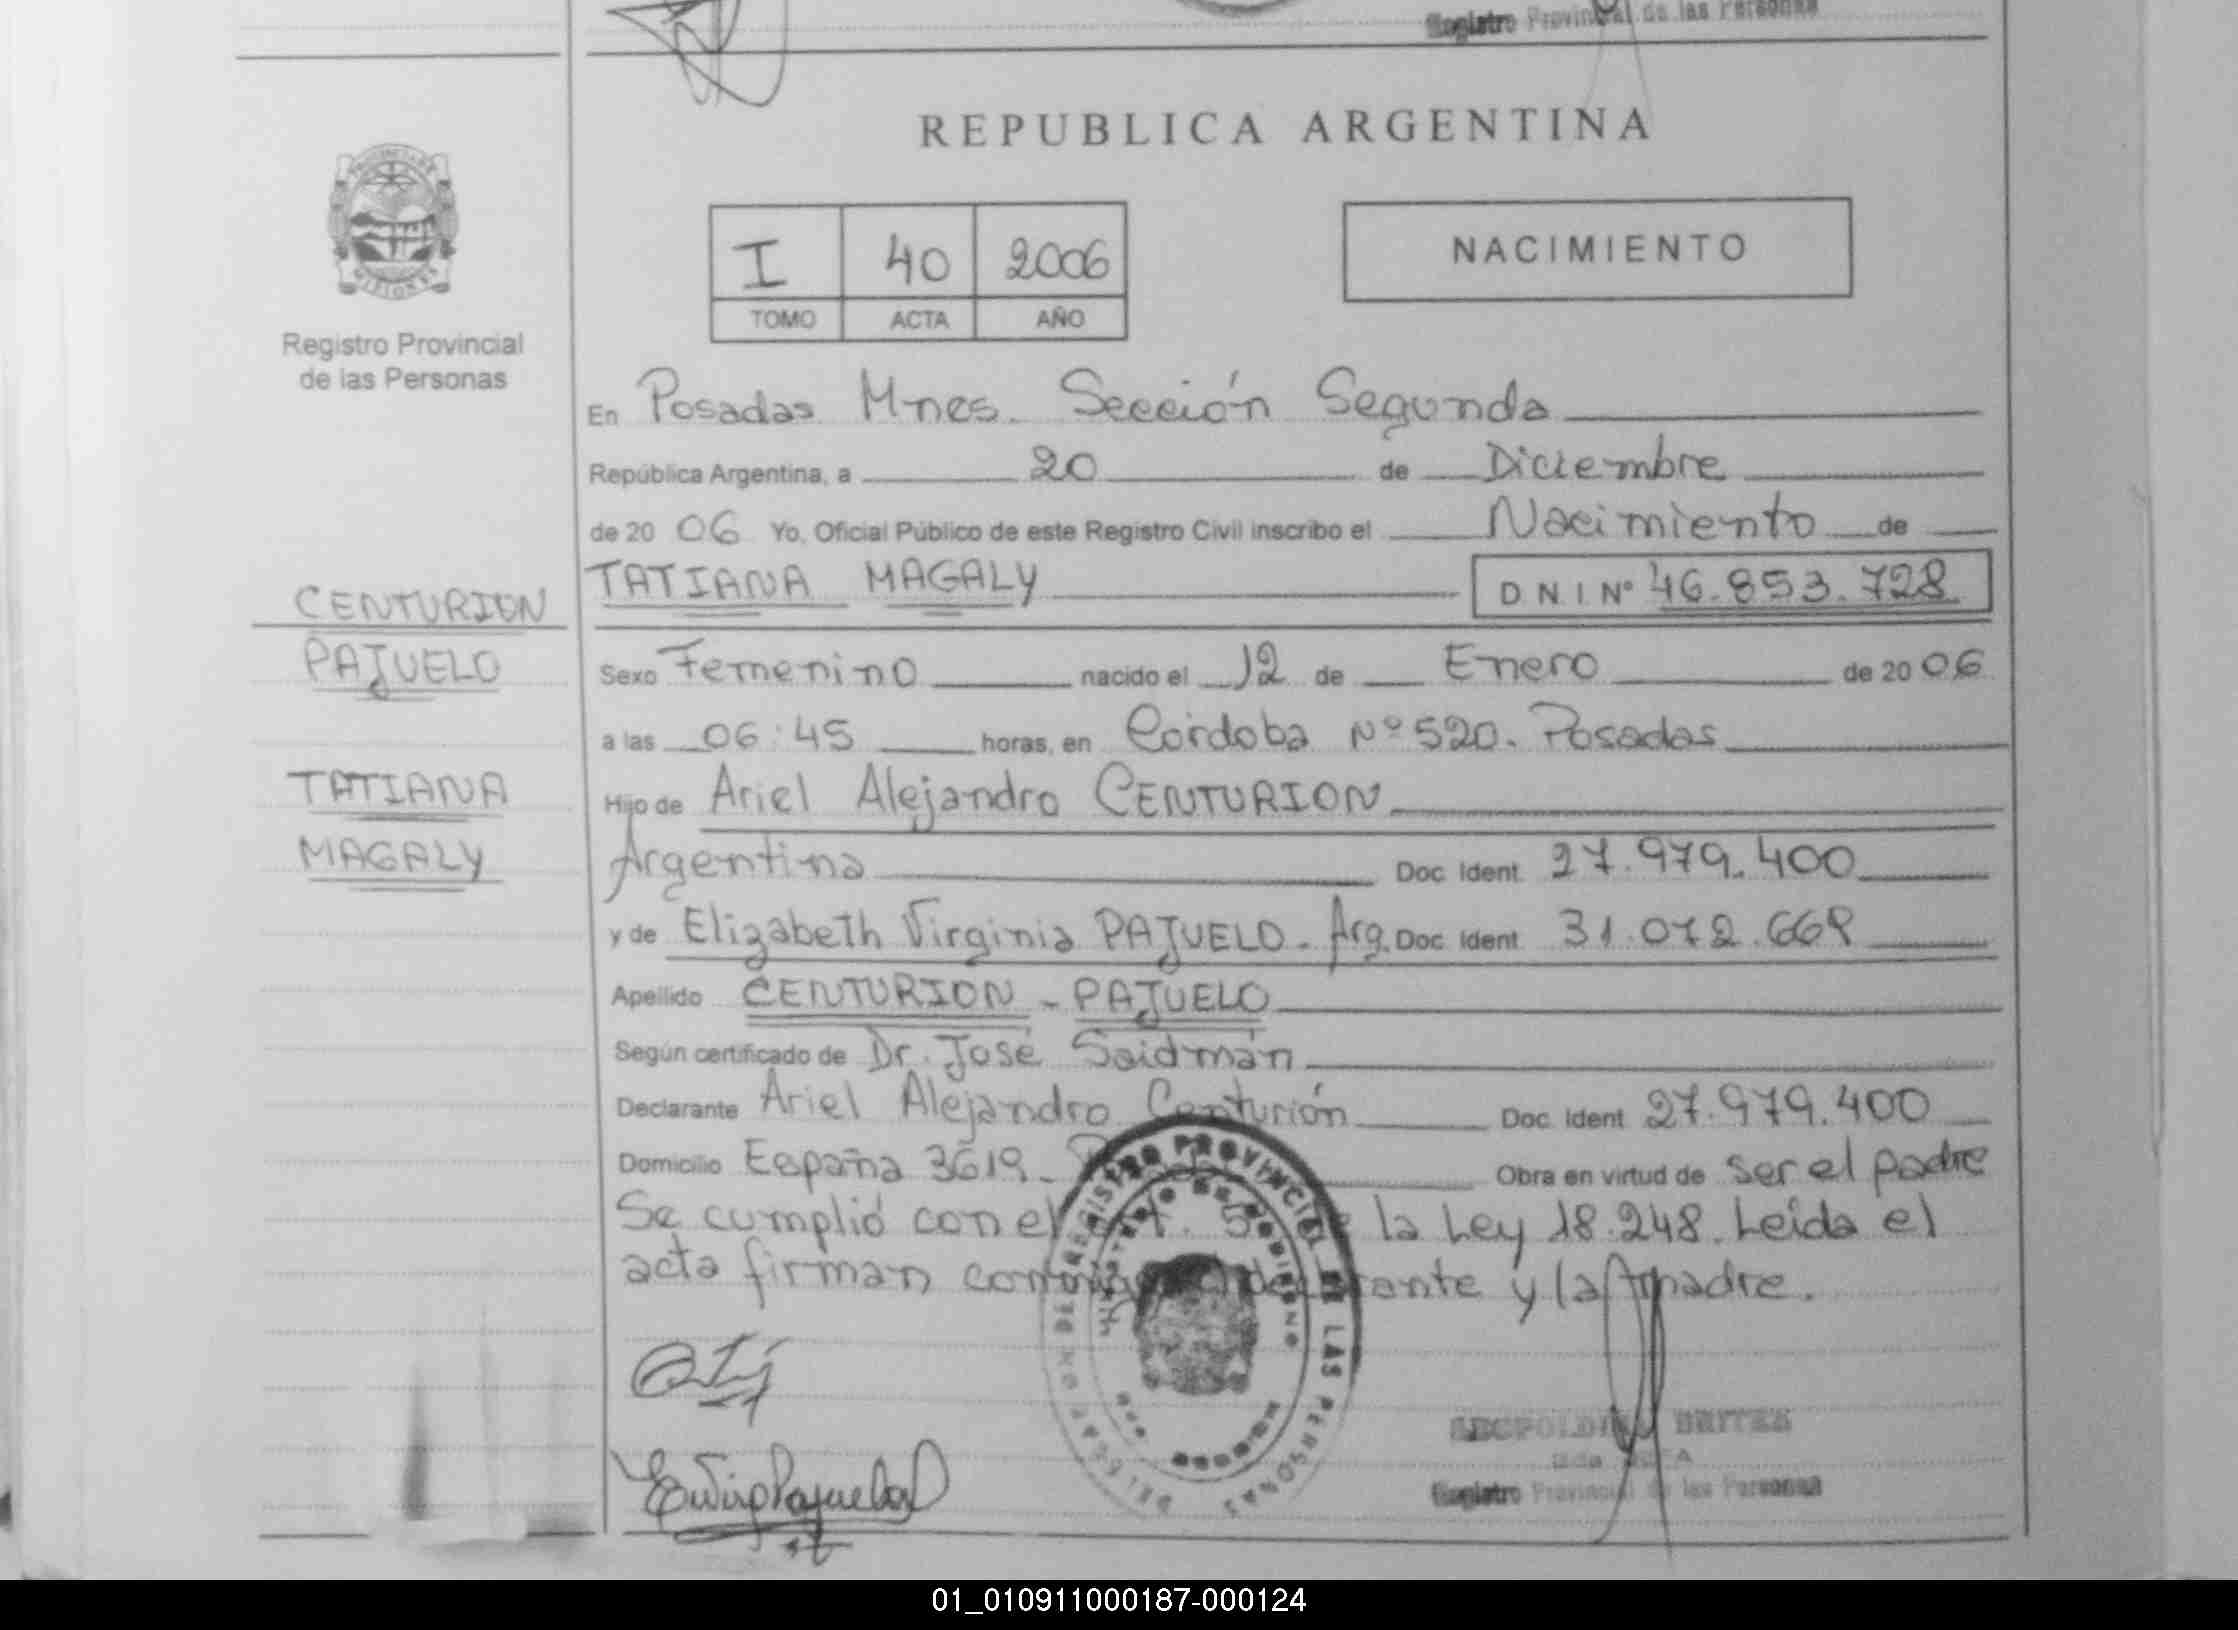 Registro Provincial de las Personas
REPUBLICA ARGENTINA
PROVINCIA DE
MISIONES
I 40 2006
TOMO ACTA AÑO
NACIMIENTO
Registro Provincial
de las Personas
En Posadas Mnes. Sección Segunda
República Argentina, a 20 de Diciembre
de 2006 Yo, Oficial Público de este Registro Civil inscribo el Nacimiento de
TATIANA MAGALY D.N.I. Nº 46.853.728
CENTURION
PAJUELO
TATIANA
MAGALY
Sexo Femenino nacido el 12 de Enero de 2006
a las 06:45 horas, en Córdoba Nº 520. Posadas
Hijo de Ariel Alejandro CENTURION
Argentina Doc. Ident. 27.979.400
y de Elizabeth Virginia PAJUELO. Arg. Doc. Ident. 31.072.669
Apellido CENTURION - PAJUELO
Según certificado de Dr. José Saidmán
Declarante Ariel Alejandro Centurión Doc. Ident. 27.979.400
Domicilio España 3619. Obra en virtud de ser el padre
Se cumplió con el la Ley 18.248. Leída el
acta firman y la madre.
REGISTRO PROVINCIAL DE LAS PERSONAS
BRITES
Registro Provincial de las Personas
01_010911000187-000124